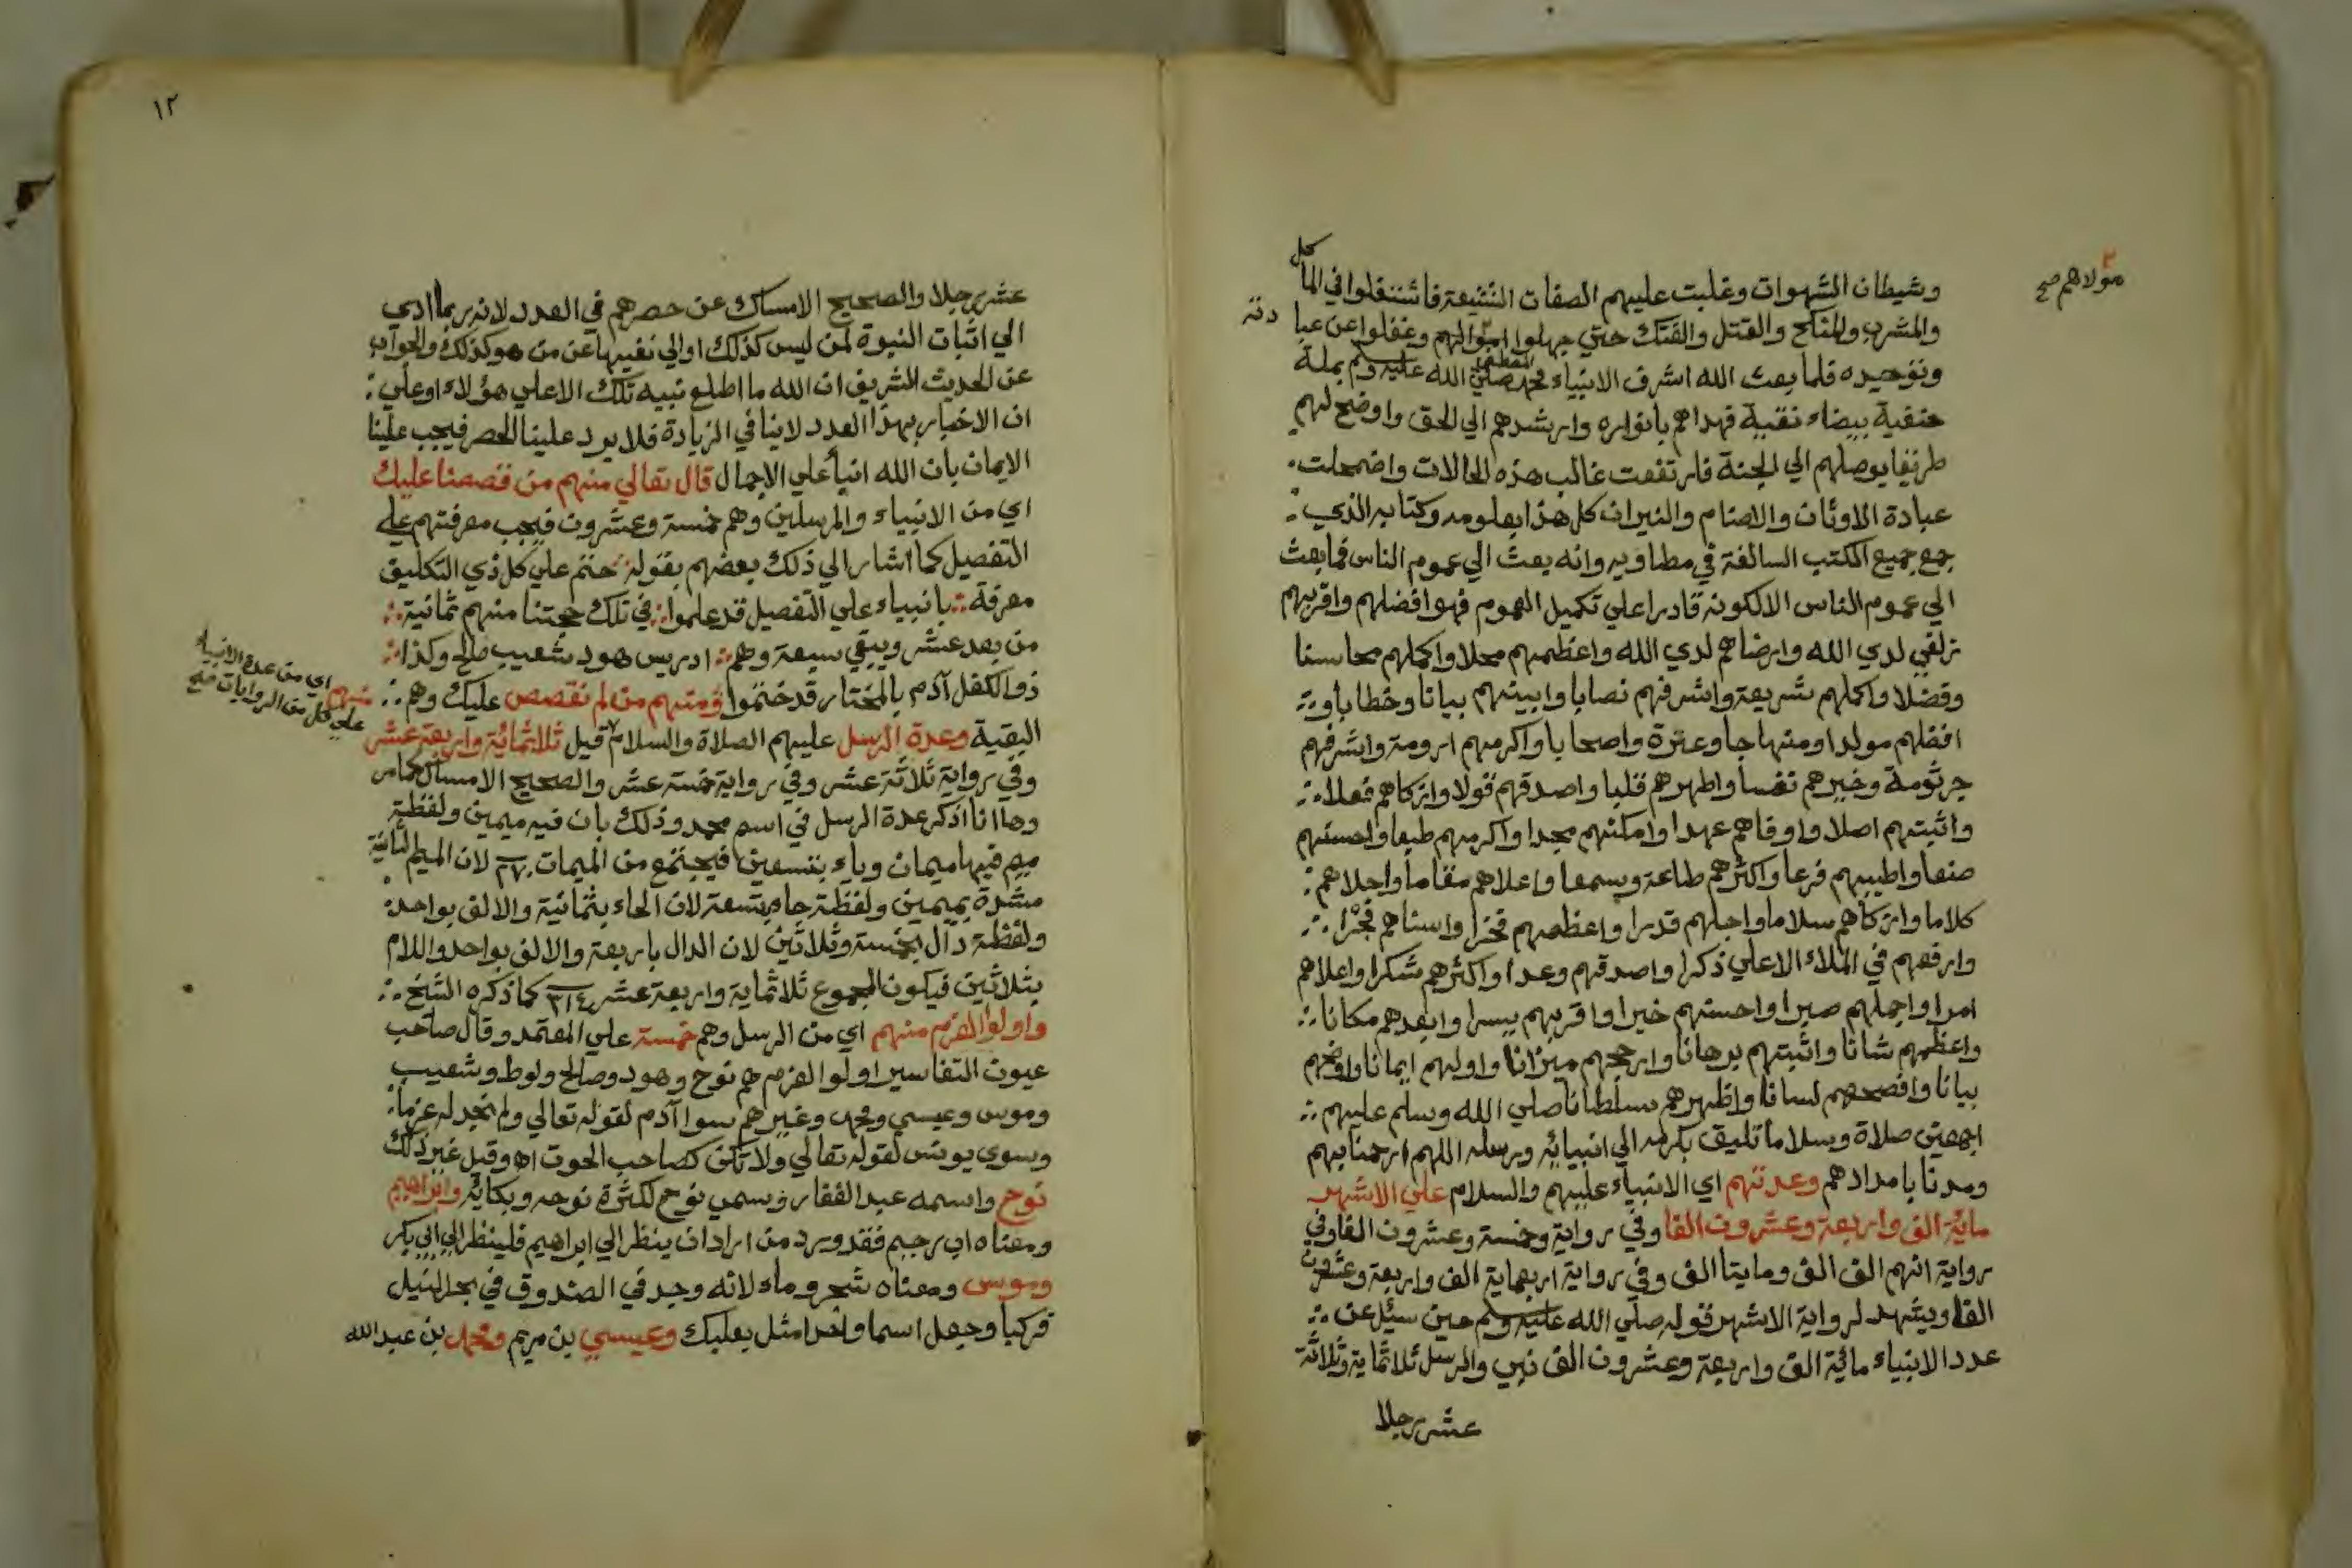 وشيطان الشهوات وغلبت عليهم الصفات الشنيعة فاشتغلوا في المأكل
والمشرب والمنكح والقتل والفتك حتي جهلوا امر مولاهم وغفلوا عن عبادته
مولاهم صح
وتوحيده فلما بعث الله اشرف الانبياء محمد صلي الله عليه وسلم بملة
حنفية بيضاء نقية فهداهم بانواره وارشدهم الي الحق واوضح لهم
طريقا يوصلهم الي الجنة فارتفعت غالب هذه الحالات واضمحلت
عبادة الاوثان والاصنام والنيران كل هذا بعلومه وكتابه الذي
جمع جميع الكتب السالفة في مطاويه وانه بعث الي عموم الناس فما بعث
الي عموم الناس الا لكونه قادرا علي تكميل العموم فهو افضلهم واقربهم
زلفي لدي الله وارضاهم لدي الله واعظمهم محلا واكملهم محاسنا
وفضلا واكملهم شريعة واشرفهم نصابا وابينهم بيانا وخطابا و
افضلهم مولدا ومنهاجا وعترة واصحابا واكرمهم ارومة واشرفهم
جرثومة وخيرهم نفسا واطهرهم قلبا واصدقهم قولا وازكاهم فعلا
واثبتهم اصلا واوفاهم عهدا وامكنهم مجدا واكرمهم طبعا واحسنهم
صنعا واطيبهم فرعا واكثرهم طاعة وسمعا واعلاهم مقاما واحلاهم
كلاما وازكاهم سلاما واجلهم قدرا واعظمهم فخرا واسناهم فجرا
وارفعهم في الملاء الاعلي ذكرا واصدقهم وعدا واكثرهم شكرا واعلاهم
امرا واجملهم صبرا واحسنهم خيرا واقربهم يسرا وابعدهم مكانا
واعظمهم شانا واثبتهم برهانا وارجحهم ميزانا واولهم ايمانا واوضحهم
بيانا وافصحهم لسانا واظهرهم سلطانا صلي الله وسلم عليهم
اجمعين صلاة وسلاما تليق بكرمه الي انبيائه ورسله اللهم ارحمنا بهم
ومدنا بامدادهم وعدتهم اي الانبياء عليهم والسلام علي الاشهر
مائة الف واربعة وعشرون الفا وفي رواية وخمسة وعشرون الفا وفي
رواية انهم الف الف ومايتا الف وفي رواية اربعماية الف واربعة وعشرون
الفا ويشهد لرواية الاشهر قوله صلي الله عليه وسلم حين سئل عن
عدد الانبياء مائة الف واربعة وعشرون الف نبي والرسل ثلاثماية وثلاثة
عشر رجلا
١٢
عشر رجلا والصحيح الامساك عن حصرهم في العدد لانه ربما ادي
الي اثبات النبوة لمن ليس كذلك او الي نفيها عن من هو كذلك والجواب
عن الحديث الشريف ان الله ما اطلع نبيه تلك الاعلي هؤلاء او علي
ان الاخبار بهذا العدد لا ينافي الزيادة فلا يرد علينا الحصر فيجب علينا
الايمان بان الله انبيأ علي الاجمال قال تعالي منهم من قصصنا عليك
اي من الانبياء والمرسلين وهم خمسة وعشرون فيجب معرفتهم علي
التفصيل كما اشار الي ذلك بعضهم بقوله حتم علي كل ذي التكليف
معرفة بانبياء علي التفصيل قد علموا في تلك حجتنا منهم ثمانية
من بعد عشر ويبقي سبعة وهم ادريس هود شعيب صالح وكذا
ذو الكفل آدم بالمختار قد ختموا ومنهم من لم نقصص عليك وهم
منهم اي من عدة الانبياء
علي كل من الروايات صح
البقية وعدة الرسل عليهم الصلاة والسلام قيل ثلاثمائة واربعة عشر
وفي رواية ثلاثة عشر وفي رواية خمسة عشر والصحيح الامساك كما مر
وها انا اذكر عدة الرسل في اسم محمد وذلك بان فيه ميمين ولفظة
ميم فيها ميمان وياء بتسعين فيجتمع من الميمات ٢٧٠ لان الميم الثانية
مشددة بميمين ولفظة حاء بتسعة لان الحاء بثمانية والالف بواحد
ولفظة دال بخمسة وثلاثين لان الدال باربعة والالف بواحد واللام
بثلاثين فيكون المجموع ثلاثماية واربعة عشر ٣١٤ كما ذكره الشيخ
واولوا العزم منهم اي من الرسل وهم خمسة علي المعتمد وقال صاحب
عيون التفاسير اولو العزم هم نوح وهود وصالح ولوط وشعيب
وموس وعيسي ومحمد وغيرهم سوا آدم لقوله تعالي ولم نجد له عزما
وسوي يونس لقوله تعالي ولا تكن كصاحب الحوت اه وقيل غير ذلك
نوح واسمه عبد الغفار وسمي نوح لكثرة نوحه وبكائه وابراهيم
ومعناه اب رحيم فقد ورد من اراد ان ينظر الي ابراهيم فلينظر الي ابي بكر
وموس ومعناه شجر وماء لانه وجد في الصندوق في بحر النيل
فركبا وجعل اسما واحدا مثل بعلبك وعيسي بن مريم ومحمد بن عبد الله